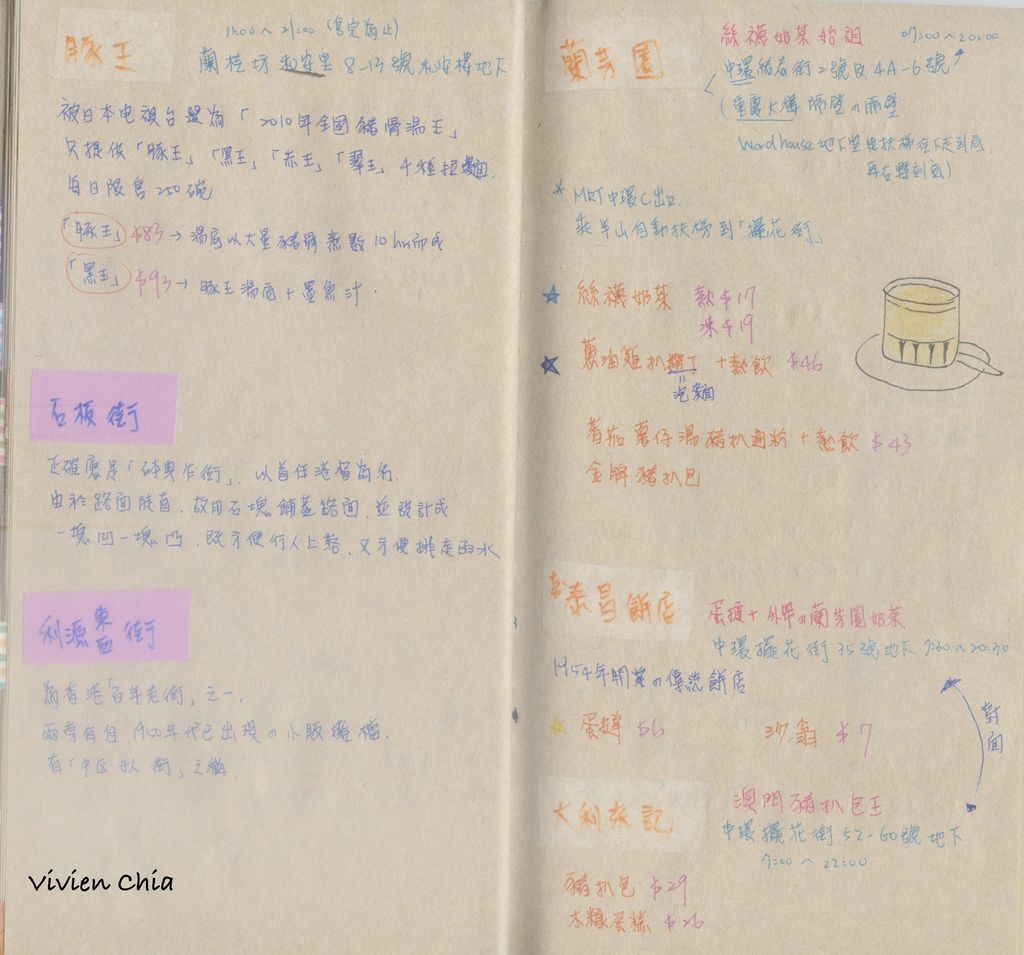 豚王
11:00~21:00 (售完為止)
蘭桂坊和安里 8-13號和安樓地下
被日本电視台譽為「2010年全國豬骨湯王」
只提供「豚王」「黑王」「赤王」「翠王」4種拉麵.
每日限售 250碗
「豚王」 $83 → 湯底以大量豬骨熬數10 hrs而成
「黑王」 $93 → 豚王湯底 + 墨魚汁.
石板街
正確應是「砵典乍街」, 以首任港督為名.
由於路面陡直, 故用石塊鋪蓋路面, 並設計成
一塊凹一塊凸, 既方便行人上落, 又方便排走雨水
利源東西街
為香港「百年老街」之一,
兩旁有自 1950年代已出現の小販攤檔.
有「中区女人街」之稱.
蘭芳園
絲襪奶茶始祖 07:00~20:00
中環結志街2號及4A-6號
(重慶大樓隔壁の隔壁
Wordhouse地下室由扶梯往下走到底,
再右轉到底)
* MRT中環C出口.
乘半山自動扶梯到「擺花街」
★ 絲襪奶茶 熱$17
凍$19
★ 蔥油雞扒撈丁 + 熱飲 $46
=泡麵
蕃茄薯仔湯豬扒通粉 + 熱飲 $43
金牌豬扒包
泰昌餅店
蛋撻 + 外帶の蘭芳園奶茶
中環擺花街35號地下 7:30~20:30
1954年開業の傳統餅店
★ 蛋撻 $6 沙翁 $7
對面
大利來記
澳門豬扒包王
中環擺花街52-60號地下
7:00~22:00
豬扒包 $29
木糠蛋糕 $26
Vivien Chia